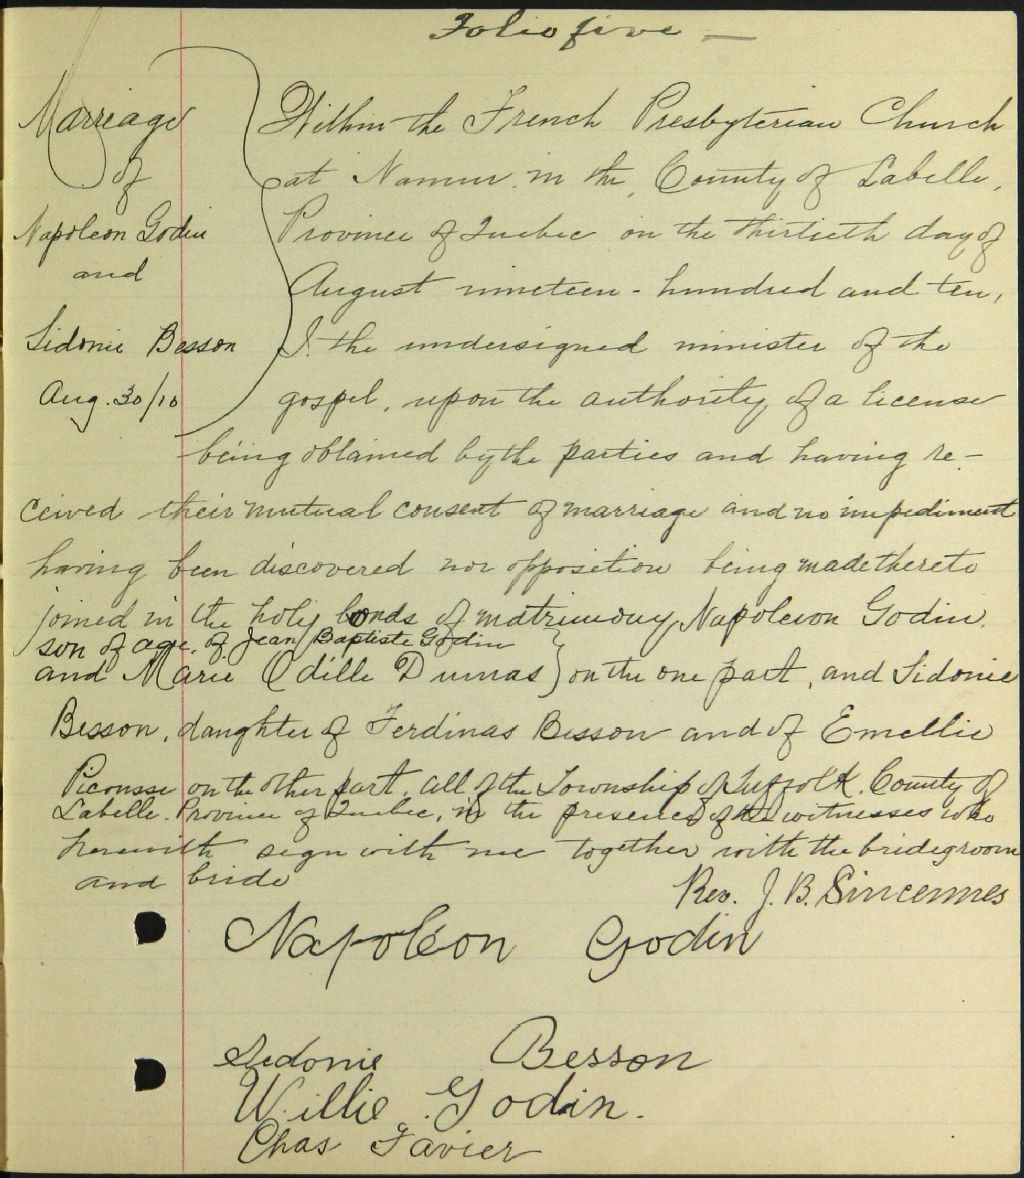 Folio five —
Marriage
of
Napoleon Godin
and
Sidonie Besson
Aug. 30/10
Within the French Presbyterian Church
at Namur in the County of Labelle,
Province of Quebec on the thirtieth day of
August nineteen-hundred and ten,
I the undersigned minister of the
gospel, upon the authority of a license
being obtained by the parties and having re-
ceived their mutual consent of marriage and no impediment
having been discovered nor opposition being made thereto
joined in the holy bonds of matrimony Napoleon Godin,
son of age, of Jean Baptiste Godin
and Marie Odille Dumas } on the one part, and Sidonie
Besson, daughter of Ferdinas Besson and of Emellie
Picousse on the other part, all of the Township of Suffolk, County of
Labelle, Province of Quebec, in the presence of the witnesses who
herewith sign with me together with the bridegroom
and bride
Rev. J. B. Sincennes
Napoléon Godin
Sidonie Besson
Willie Godin.
Chas Favier